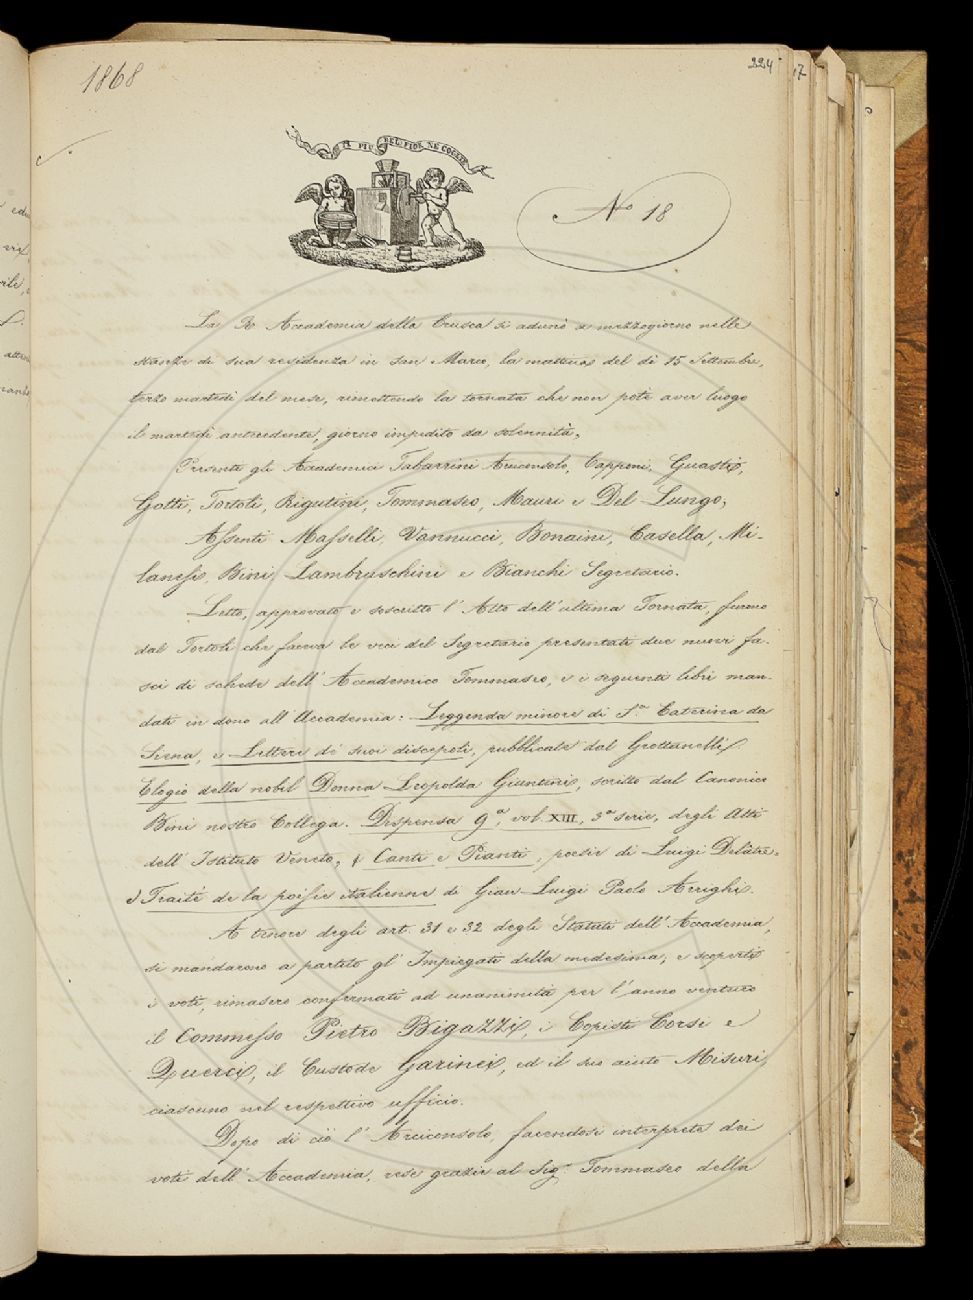 1868
224
17
IL PIÙ BEL FIOR NE COGLIE
N.º 18
La R. Accademia della Crusca si adunò a mezzogiorno nelle
stanze di sua residenza in san Marco, la mattina del dì 15 Settembre,
terzo martedì del mese, rimettendo la tornata che non potè aver luogo
il martedì antecedente, giorno impedito da solennità.
Presenti gli Accademici Tabarrini Arciconsolo, Capponi, Guasti,
Gotti, Tortoli, Rigutini, Tommaseo, Mauri e Del Lungo;
Assenti Masselli, Vannucci, Bonaini, Casella, Mi-
lanesi, Bini, Lambruschini e Bianchi Segretario.
Letto, approvato e soscritto l'Atto dell'ultima Tornata, furono
dal Tortoli che faceva le veci del Segretario presentati due nuovi fa-
sci di schede dell'Accademico Tommaseo, e i seguenti libri man-
dati in dono all'Accademia: Leggenda minore di S.ª Caterina da
Siena, e Lettere de' suoi discepoli, pubblicate dal Grottanelli.
Elogio della nobil Donna Leopolda Giuntini, scritto dal Canonico
Bini nostro Collega. Dispensa 9ª, vol. XIII, 3ª serie, degli Atti
dell'Istituto Veneto; Canti e Pianti, poesie di Luigi Delâtre.
Traité de la poésie italienne di Gian Luigi Paolo Arrighi.
A tenore degli art. 31 e 32 degli Statuti dell'Accademia,
si mandarono a partito gl'Impiegati della medesima; e scoperti
i voti, rimasero confermati ad unanimità per l'anno venturo
il Commesso Pietro Bigazzi, i Copisti Corsi e
Querci, il Custode Garinei, ed il suo aiuto Misuri,
ciascuno nel respettivo ufficio.
Dopo di ciò l'Arciconsolo, facendosi interprete dei
voti dell'Accademia, rese grazie al Sig.r Tommaseo della